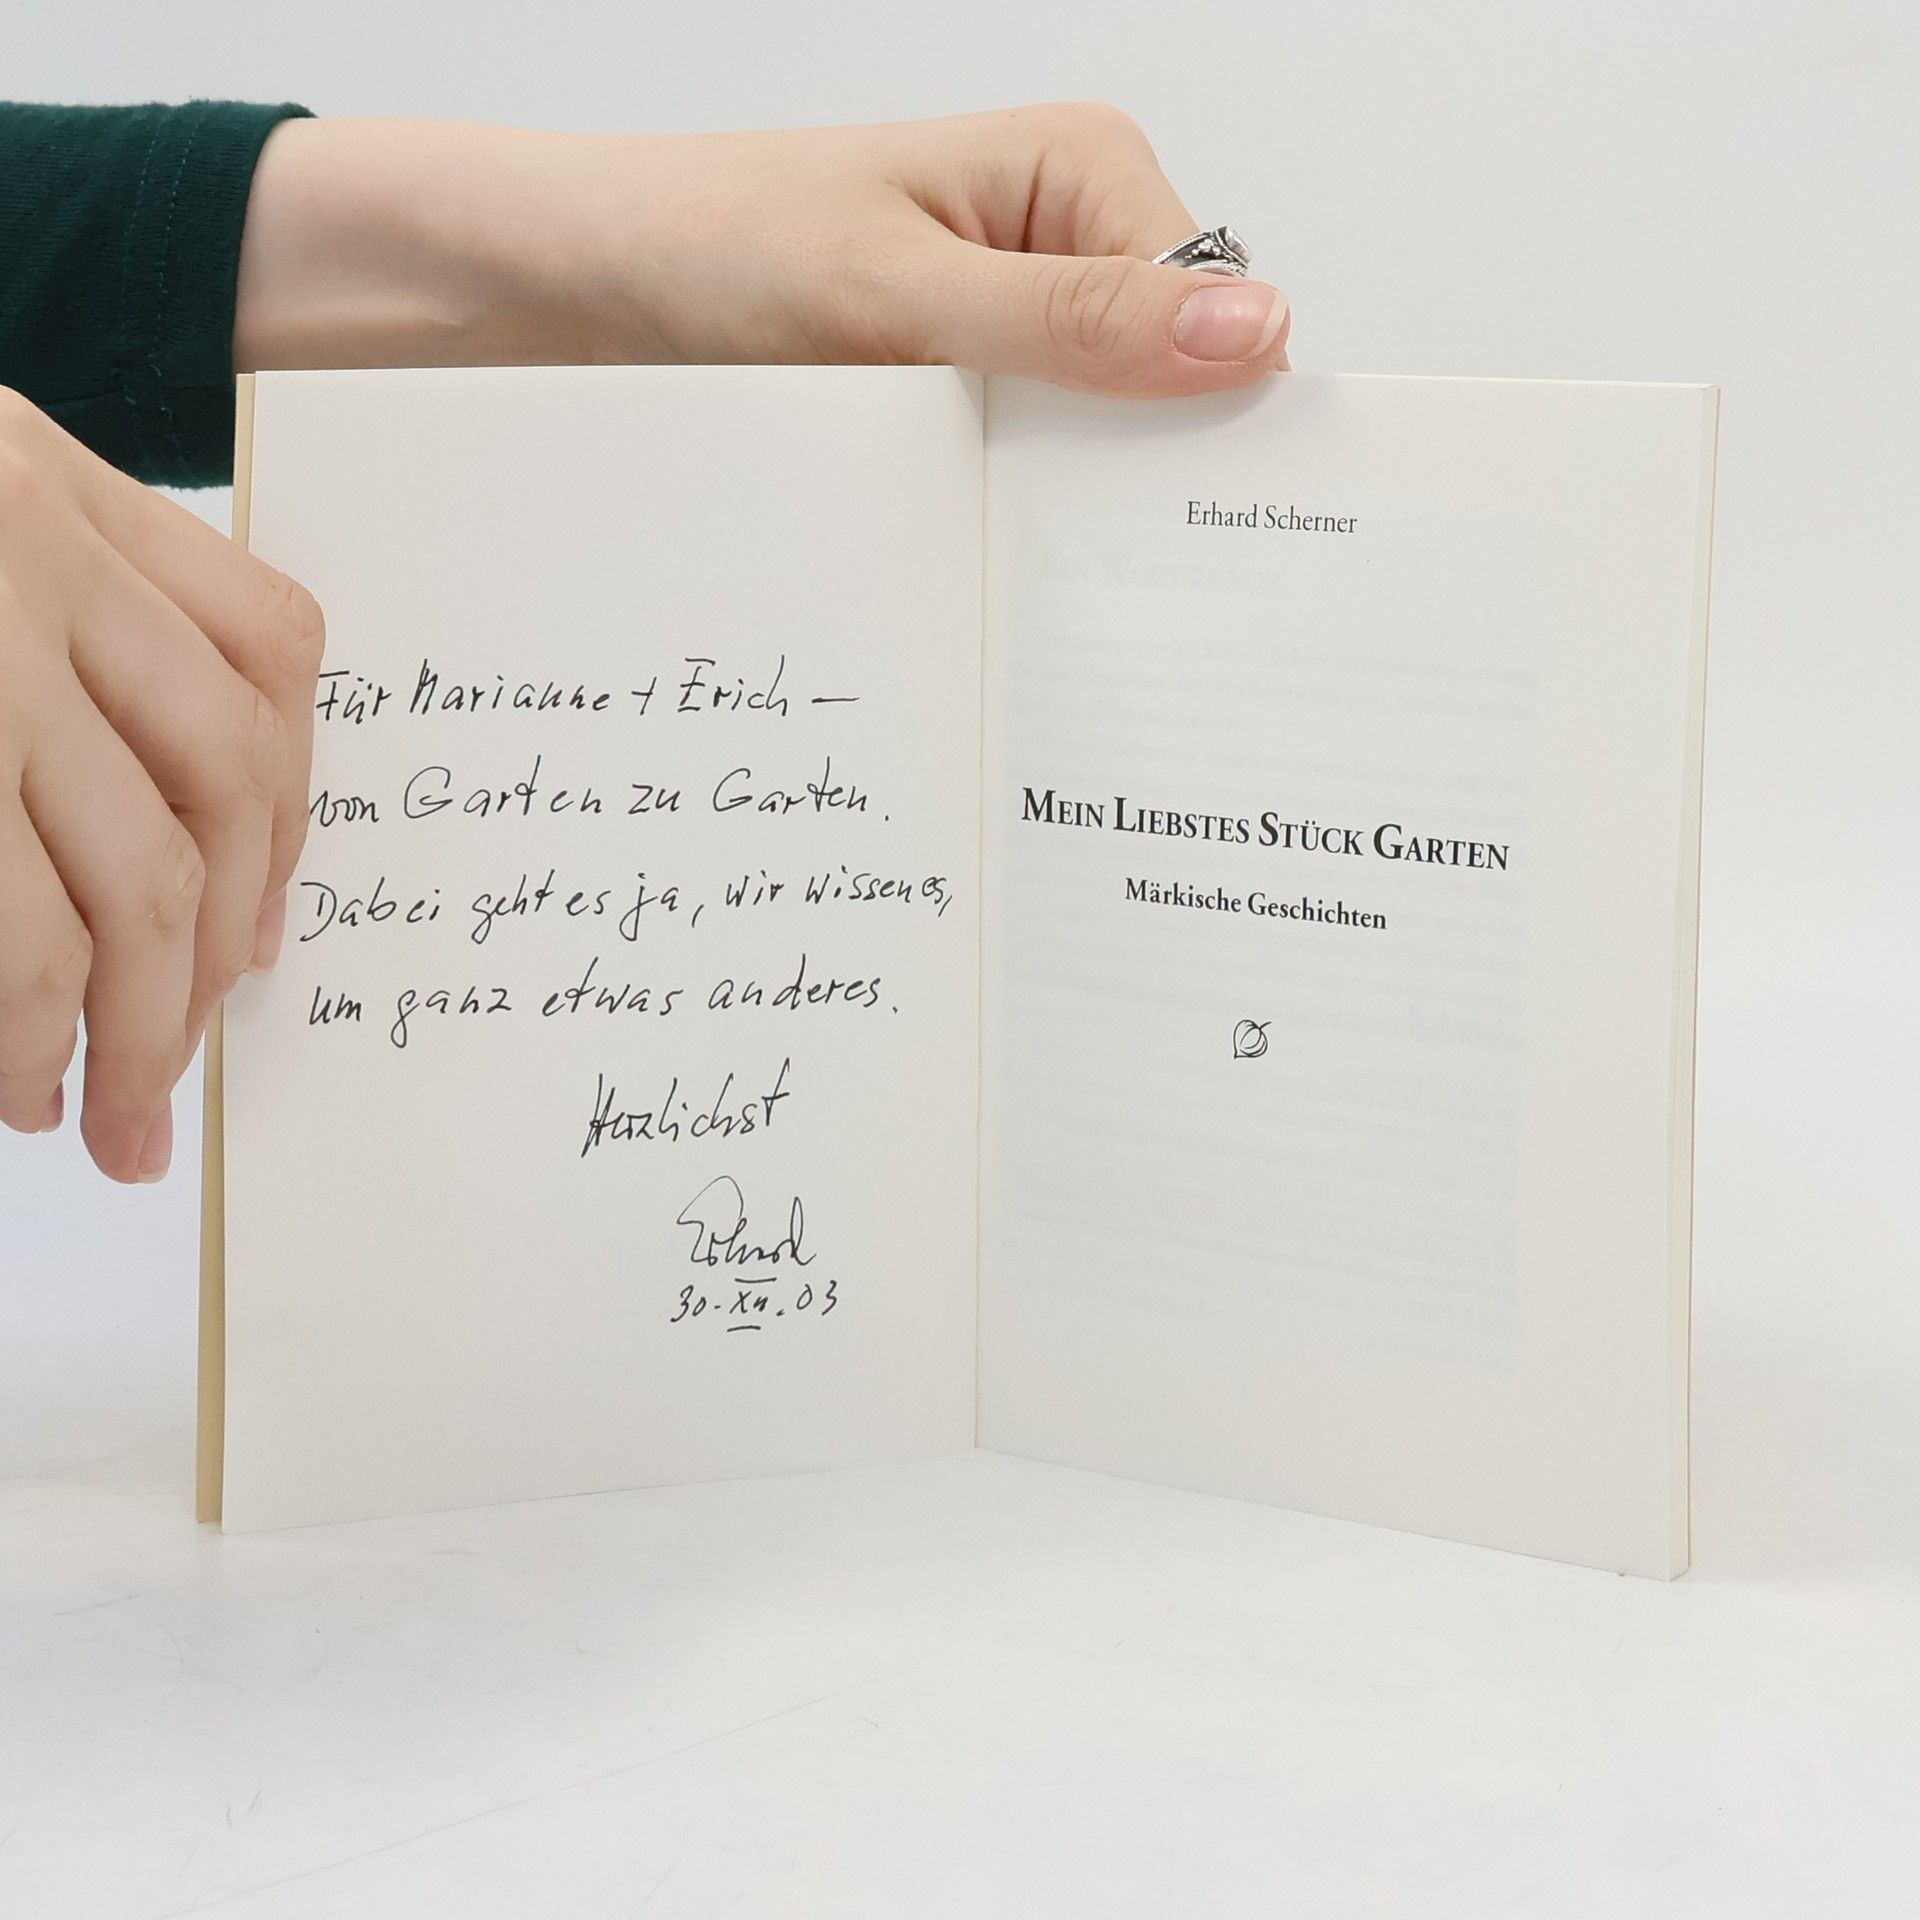 Für Marianne + Erich –
von Garten zu Garten.
Dabei geht es ja, wir wissen es,
um ganz etwas anderes.
Herzlichst
Erhard
30.XII.03
Erhard Scherner
MEIN LIEBSTES STÜCK GARTEN
Märkische Geschichten
EIN WORT ZUVOR